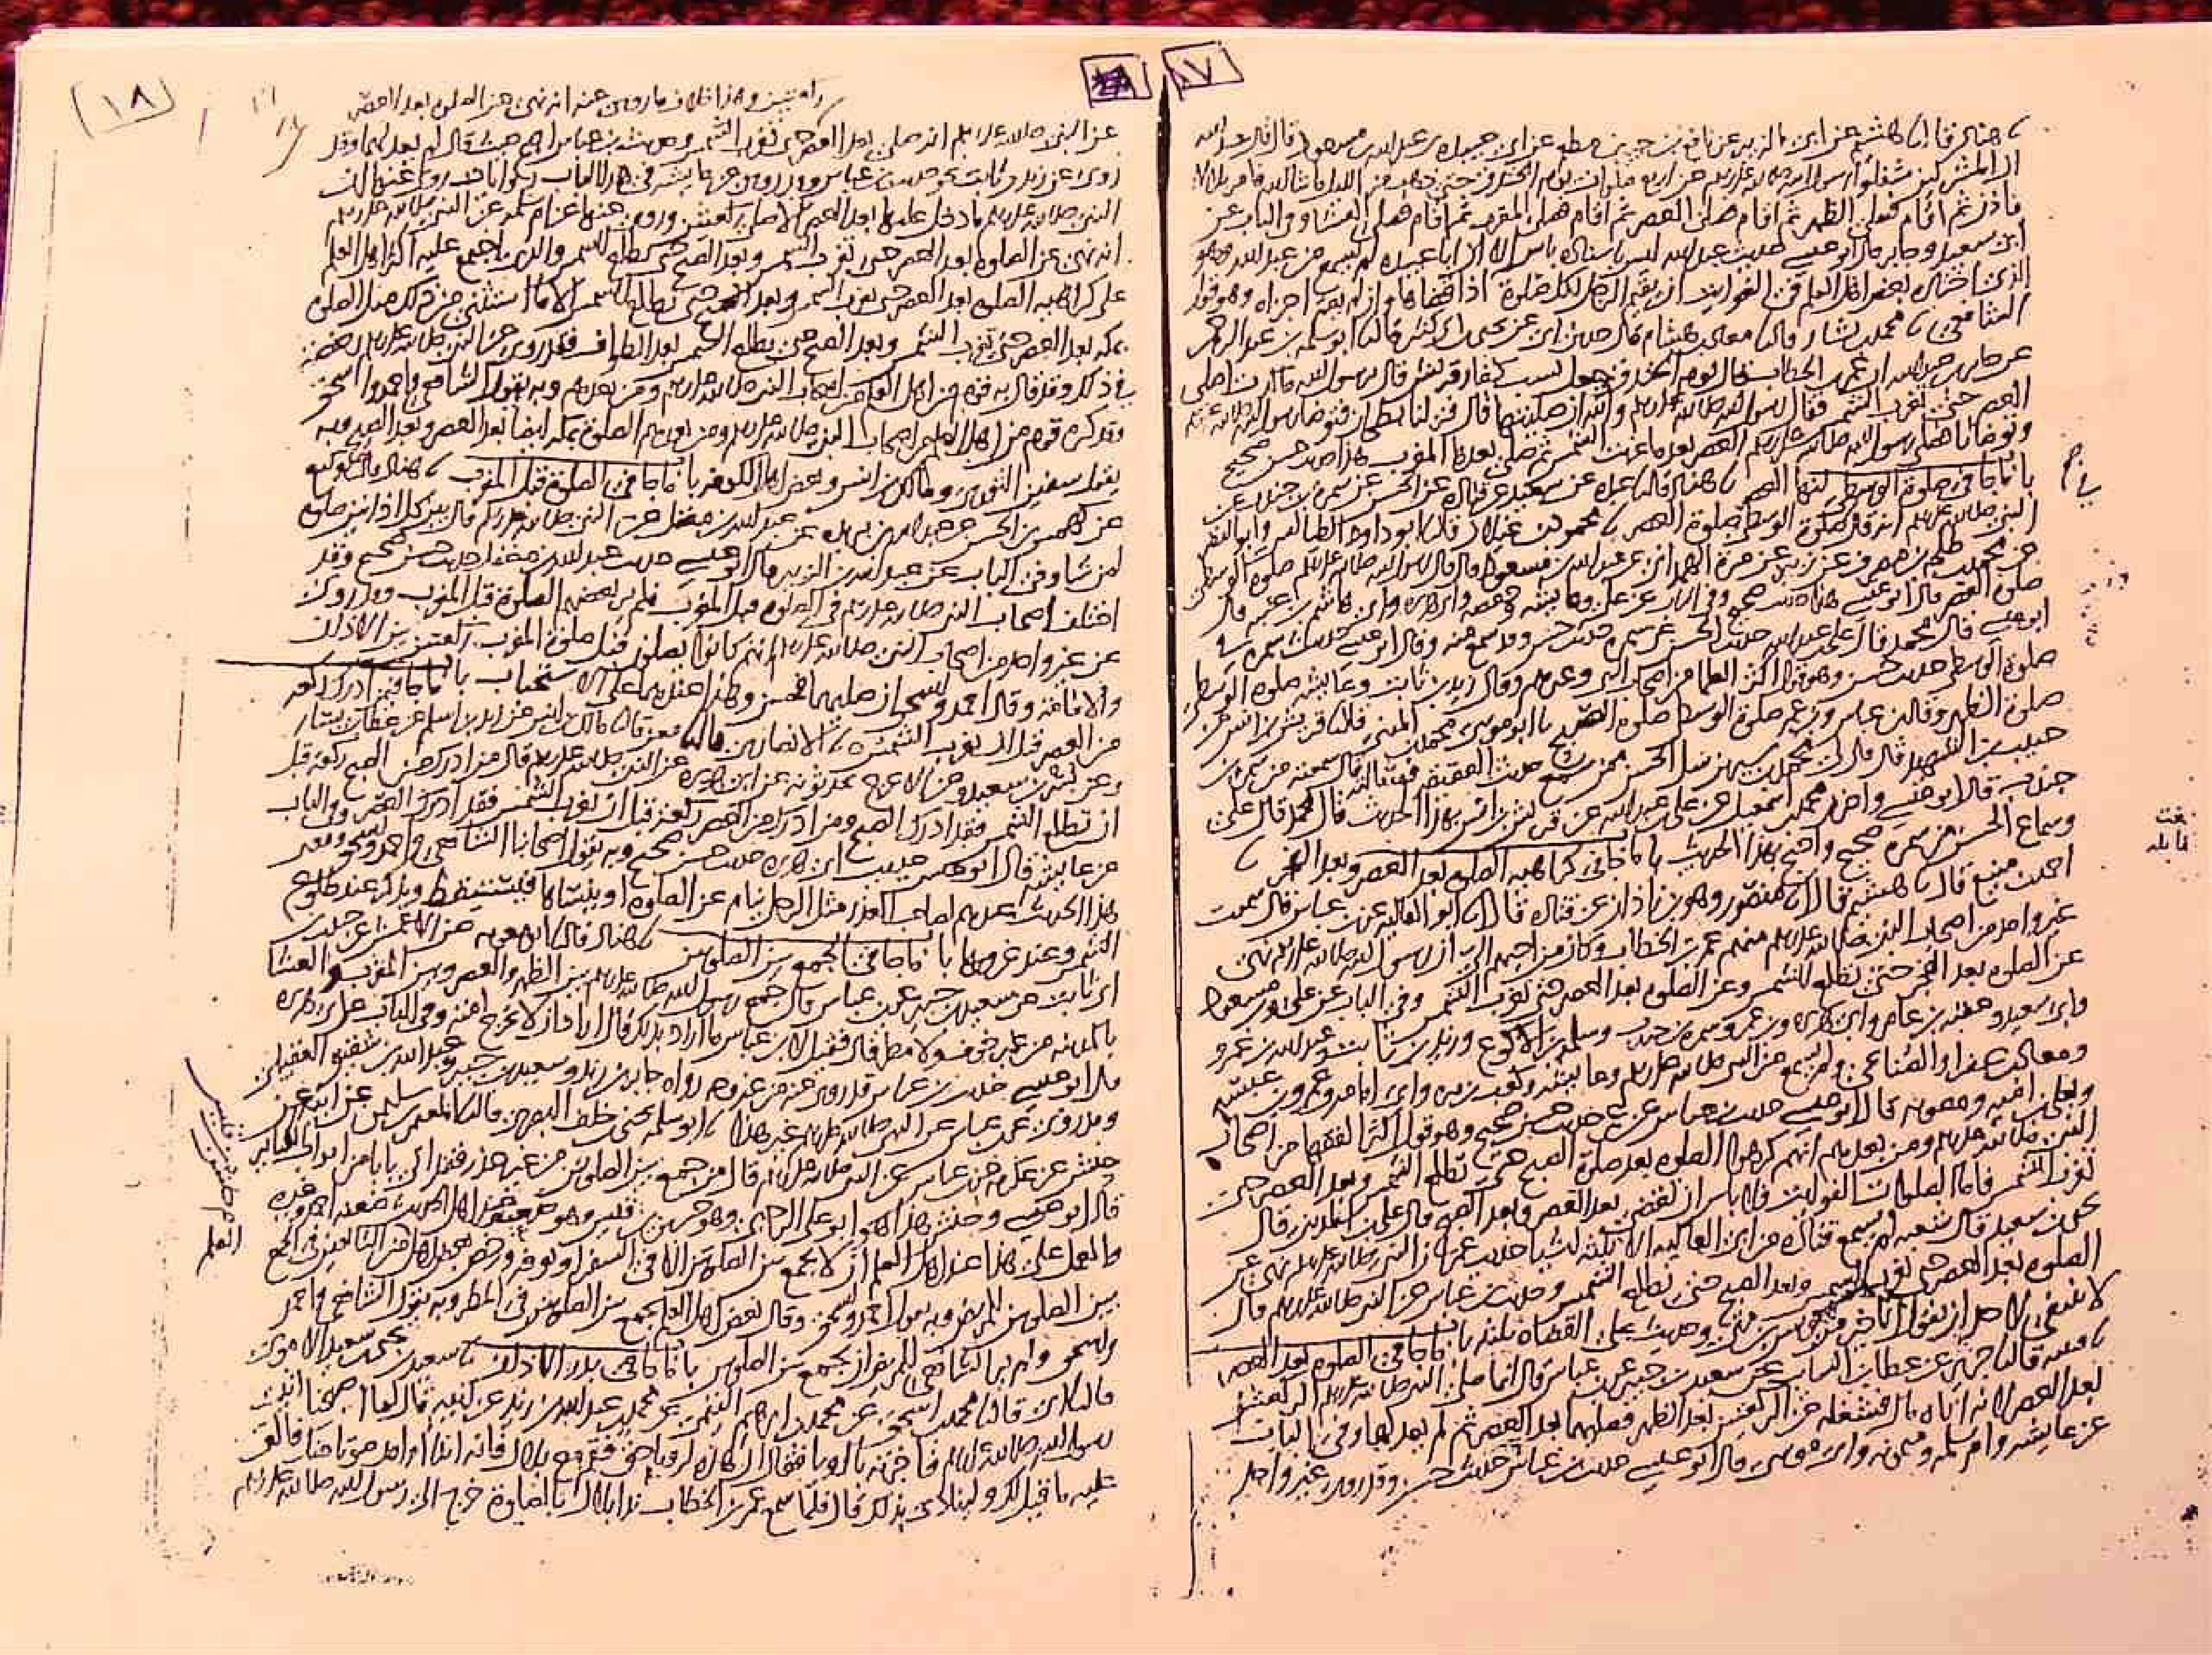 ١٧
نا هناد قال نا هشيم عن ابي الزبير عن نافع بن جبير بن مطعم عن ابي عبيدة بن عبد الله بن مسعود قال قال عبد الله
ان المشركين شغلوا رسول الله صلى الله عليه وسلم عن اربع صلوات يوم الخندق حتى ذهب من الليل ما شا الله فامر بلالا
فاذن ثم اقام فصلى الظهر ثم اقام فصلى العصر ثم اقام فصلى المغرب ثم اقام فصلى العشا وفي الباب عن
ابي سعيد وجابر قال ابو عيسى حديث عبد الله ليس باسناده باس الا ان ابا عبيدة لم يسمع من عبد الله وهو
الذي اختاره بعض اهل العلم في الفوايت ان يقيم الرجل لكل صلوة اذا قضاها وان لم يقم اجزاه وهو قول
الشافعي نا محمد بن بشار قال نا معاذ بن هشام قال حدثني ابي عن يحيى بن ابي كثير قال نا ابو سلمة بن عبد الرحمن
عن جابر بن عبد الله ان عمر بن الخطاب قال يوم الخندق وجعل يسب كفار قريش قال يرسول الله ما كدت اصلي
العصر حتى تغرب الشمس فقال رسول الله صلى الله عليه وسلم والله ان صليتها قال فنزلنا بطحان فتوضا رسول الله صلى الله عليه وسلم
وتوضانا فصلى رسول الله صلى الله عليه وسلم العصر بعد ما غربت الشمس ثم صلى بعدها المغرب هذا حديث حسن صحيح
باب ما جا في صلوة الوسطى انها العصر نا هناد قال نا عبدة عن سعيد عن قتادة عن الحسن عن سمرة بن جندب عن
النبي صلى الله عليه وسلم انه قال صلوة الوسطى صلوة العصر نا محمود بن غيلان قال نا ابو داود الطيالسي وابو النضر
عن محمد بن طلحة بن مصرف عن زبيد عن مرة الهمداني عن عبد الله بن مسعود قال قال رسول الله صلى الله عليه وسلم صلوة الوسطى
صلوة العصر قال ابو عيسى هذا حديث صحيح وفي الباب عن علي وعايشة وحفصة وابي هريرة وابي هاشم بن عتبة قال
ابو عيسى قال محمد قال علي بن عبد الله حديث الحسن عن سمرة حديث حسن وقد سمع منه وقال ابو عيسى حديث سمرة في
صلوة الوسطى حديث حسن وهو قول اكثر العلما من اصحاب النبي وغيرهم وقال زيد بن ثابت وعايشة صلوة الوسطى
صلوة الظهر وقال بن عباس وبن عمر صلوة الوسطى صلوة الصبح نا ابو موسى محمد بن المثنى قال نا قريش بن انس عن
حبيب بن الشهيد قال قال لي محمد بن سيرين سل الحسن ممن سمع حديث العقيقة فسالته فقال سمعته من سمرة بن
جندب قال ابو عيسى واخبرني محمد بن اسمعيل عن علي بن عبد الله عن قريش بن انس بهذا الحديث قال محمد قال علي
وسماع الحسن من سمرة صحيح واحتج بهذا الحديث باب ما جا في كراهية الصلوة بعد العصر وبعد الفجر نا
احمد بن منيع قال نا هشيم قال انا منصور وهو بن زاذان عن قتادة قال انا ابو العالية عن بن عباس قال سمعت
غير واحد من اصحاب النبي صلى الله عليه وسلم منهم عمر بن الخطاب وكان من احبهم الي ان رسول الله صلى الله عليه وسلم نهى
عن الصلوة بعد الفجر حتى تطلع الشمس وعن الصلوة بعد العصر حتى تغرب الشمس وفي الباب عن علي وبن مسعود
وابي سعيد وعقبة بن عامر وابي هريرة وبن عمر وسمرة بن جندب وسلمة بن الاكوع وزيد بن ثابت وعبد الله بن عمرو
ومعاذ بن عفرا والصنابحي ولم يسمع من النبي صلى الله عليه وسلم وعايشة وكعب بن مرة وابي امامة وعمرو بن عبسة
ويعلى بن امية ومعوية قال ابو عيسى حديث بن عباس عن عمر حديث حسن صحيح وهو قول اكثر الفقها من اصحاب
النبي صلى الله عليه وسلم ومن بعدهم انهم كرهوا الصلوة بعد صلوة الصبح حتى تطلع الشمس وبعد العصر حتى
تغرب الشمس فاما الصلوات الفوايت فلا باس ان تقضى بعد العصر وبعد الصبح قال علي بن المديني قال
يحيى بن سعيد قال شعبة لم يسمع قتادة من ابي العالية الا ثلثة اشيا حديث عمر ان النبي صلى الله عليه وسلم نهى عن
الصلوة بعد العصر حتى تغرب الشمس وبعد الصبح حتى تطلع الشمس وحديث بن عباس عن النبي صلى الله عليه وسلم قال
لا ينبغي لاحد ان يقول انا خير من يونس بن متى وحديث علي القضاة ثلثة باب ما جا في الصلوة بعد العصر
نا قتيبة قال نا جرير عن عطا بن السايب عن سعيد بن جبير عن بن عباس قال انما صلى النبي صلى الله عليه وسلم الركعتين
بعد العصر لانه اتاه مال فشغله عن الركعتين بعد الظهر فصلاهما بعد العصر ثم لم يعد لهما وفي الباب
عن عايشة وام سلمة وميمونة وابي موسى قال ابو عيسى حديث بن عباس حديث حسن وقد روى غير واحد
بلغ
مقابلة
١٨
ركعتين وهذا خلاف ما روي عنه انه نهى عن الصلوة بعد العصر
عن النبي صلى الله عليه وسلم انه صلى بعد العصر حتى تغرب الشمس وحديث بن عباس اصح حيث قال لم يعد لهما وقد
روي عن زيد بن ثابت نحو حديث بن عباس وقد روي عن عايشة في هذا الباب روايات روي عنها ان
النبي صلى الله عليه وسلم ما دخل عليها بعد العصر الا صلى ركعتين وروي عنها عن ام سلمة عن النبي صلى الله عليه وسلم
انه نهى عن الصلوة بعد العصر حتى تغرب الشمس وبعد الصبح حتى تطلع الشمس والذي اجتمع عليه اكثر اهل العلم
على كراهية الصلوة بعد العصر حتى تغرب الشمس وبعد الصبح حتى تطلع الشمس الا ما استثني من ذلك مثل الصلوة
بمكة بعد العصر حتى تغرب الشمس وبعد الصبح حتى تطلع الشمس بعد الطواف فقد روي عن النبي صلى الله عليه وسلم رخصة
في ذلك وقد قال به قوم من اهل العلم من اصحاب النبي صلى الله عليه وسلم ومن بعدهم وبه يقول الشافعي واحمد واسحق
وقد كره قوم من اهل العلم من اصحاب النبي صلى الله عليه وسلم ومن بعدهم الصلوة بمكة ايضا بعد العصر وبعد الصبح وبه
يقول سفين الثوري ومالك بن انس وبعض اهل الكوفة باب ما جا في الصلوة قبل المغرب نا هناد قال نا وكيع
عن كهمس بن الحسن عن عبد الله بن بريدة عن عبد الله بن مغفل عن النبي صلى الله عليه وسلم قال بين كل اذانين صلوة
لمن شا وفي الباب عن عبد الله بن الزبير قال ابو عيسى حديث عبد الله بن مغفل حديث حسن صحيح وقد
اختلف اصحاب النبي صلى الله عليه وسلم في الصلوة قبل المغرب فلم ير بعضهم الصلوة قبل المغرب وقد روي
عن غير واحد من اصحاب النبي صلى الله عليه وسلم انهم كانوا يصلون قبل صلوة المغرب ركعتين بين الاذان
والاقامة وقال احمد واسحق ان صلاهما فحسن وهذا عندهما على الاستحباب باب ما جا فيمن ادرك ركعة
من العصر قبل ان تغرب الشمس نا الانصاري قال نا معن قال نا مالك بن انس عن زيد بن اسلم عن عطا بن يسار
وعن بسر بن سعيد وعن الاعرج يحدثونه عن ابي هريرة عن النبي صلى الله عليه وسلم قال من ادرك من الصبح ركعة قبل
ان تطلع الشمس فقد ادرك الصبح ومن ادرك من العصر ركعة قبل ان تغرب الشمس فقد ادرك العصر وفي الباب
عن عايشة قال ابو عيسى حديث ابي هريرة حديث حسن صحيح وبه يقول اصحابنا الشافعي واحمد واسحق ومعنى
هذا الحديث عندهم لصاحب العذر مثل الرجل ينام عن الصلوة او ينساها فيستيقظ ويذكر عند طلوع
الشمس وعند غروبها باب ما جا في الجمع بين الصلوتين نا هناد قال نا ابو معوية عن الاعمش عن حبيب
بن ابي ثابت عن سعيد بن جبير عن بن عباس قال جمع رسول الله صلى الله عليه وسلم بين الظهر والعصر وبين المغرب والعشا
بالمدينة من غير خوف ولا مطر قال فقيل لابن عباس ما اراد بذلك قال اراد ان لا يحرج امته وفي الباب عن ابي هريرة
قال ابو عيسى حديث بن عباس قد روي عنه من غير وجه رواه جابر بن زيد وسعيد بن جبير وعبد الله بن شقيق العقيلي
وقد روي عن بن عباس عن النبي صلى الله عليه وسلم غير هذا نا ابو سلمة يحيى بن خلف البصري قال نا المعتمر بن سليمن عن ابيه عن
حنش عن عكرمة عن بن عباس عن النبي صلى الله عليه وسلم قال من جمع بين الصلوتين من غير عذر فقد اتى بابا من ابواب الكباير
قال ابو عيسى وحنش هذا هو ابو علي الرحبي وهو حسين بن قيس وهو ضعيف عند اهل الحديث ضعفه احمد وغيره
والعمل على هذا عند اهل العلم ان لا يجمع بين الصلوتين الا في السفر او بعرفة ورخص بعض اهل العلم من التابعين في الجمع
بين الصلوتين للمريض وبه يقول احمد واسحق وقال بعض اهل العلم يجمع بين الصلوتين في المطر وبه يقول الشافعي واحمد
واسحق ولم ير الشافعي للمريض ان يجمع بين الصلوتين باب ما جا في بدو الاذان نا سعيد بن يحيى بن سعيد الاموي
قال نا ابي قال نا محمد بن اسحق عن محمد بن ابرهيم التيمي عن محمد بن عبد الله بن زيد عن ابيه قال لما اصبحنا اتيت
رسول الله صلى الله عليه وسلم فاخبرته بالرويا فقال ان هذه لرويا حق فقم مع بلال فانه اندا وامد صوتا منك فالق
عليه ما قيل لك وليناد بذلك قال فلما سمع عمر بن الخطاب ندا بلال بالصلوة خرج الى رسول الله صلى الله عليه وسلم